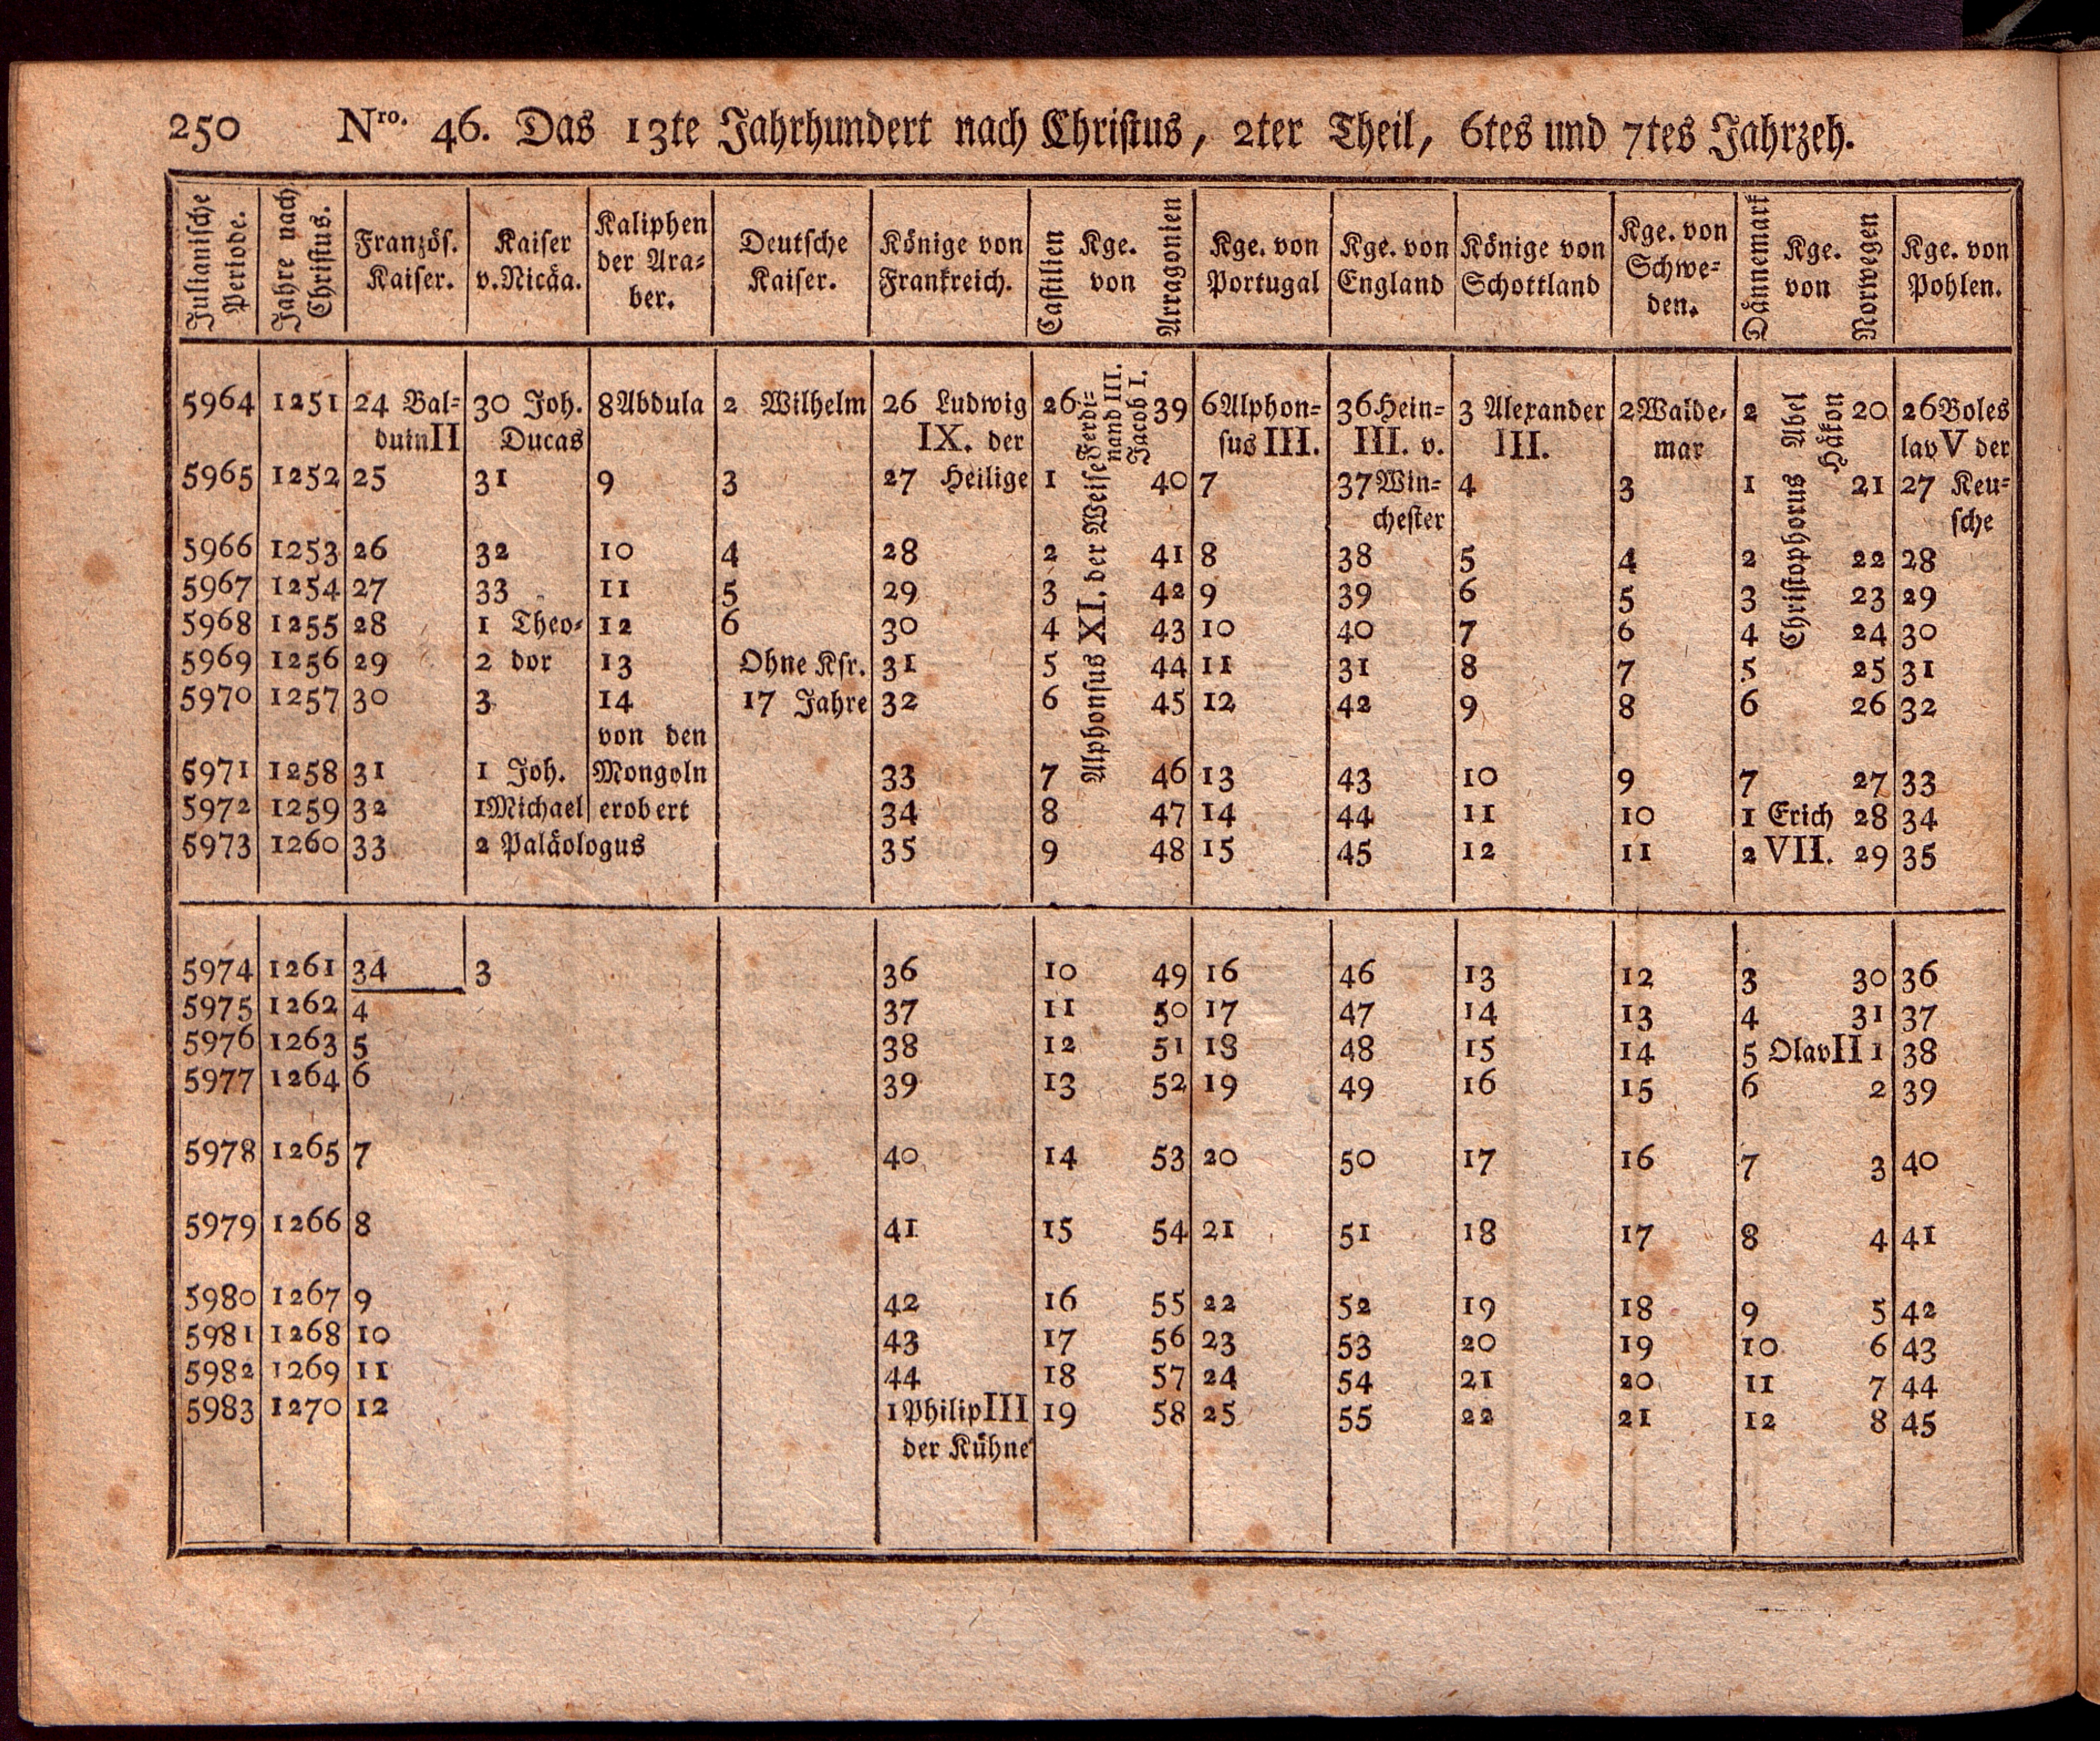 250 Nro. 46. Das 13te Jahrhundert nach Christus, 2ter Theil, 6tes und 7tes Jahrzeh.
Julianische Periode. Jahre nach Christus. Französ. Kaiser. Kaiser v. Nicäa. Kaliphen der Ara= ber. Deutsche Kaiser. Könige von Frankreich. Castilien Kge. von Arragonien Kge. von Portugal Kge. von England Könige von Schottland Kge. von Schwe= den. Dännemark Kge. von Norwegen Kge. von Pohlen.
5964 1251 24 Bal= 30 Joh. 8 Abdula 2 Wilhelm 26 Ludwig 26 Ferdi= nand III. Jacob I. 39 6 Alphon= 36 Hein= 3 Alexander 2 Walde= 2 Abel Håkon 20 26 Boles
duin II Ducas IX. der sus III. III. v. III. mar lav V der
5965 1252 25 31 9 3 27 Heilige 1 Alphonsus XI. der Weise 40 7 37 Win= 4 3 1 Christophorus 21 27 Keu=
chester sche
5966 1253 26 32 10 4 28 2 41 8 38 5 4 2 22 28
5967 1254 27 33 11 5 29 3 42 9 39 6 5 3 23 29
5968 1255 28 1 Theo= 12 6 30 4 43 10 40 7 6 4 24 30
5969 1256 29 2 dor 13 Ohne Ksr. 31 5 44 11 31 8 7 5 25 31
5970 1257 30 3 14 17 Jahre 32 6 45 12 42 9 8 6 26 32
von den
5971 1258 31 1 Joh. Mongoln 33 7 46 13 43 10 9 7 27 33
5972 1259 32 1 Michael erobert 34 8 47 14 44 11 10 1 Erich 28 34
5973 1260 33 2 Paläologus 35 9 48 15 45 12 11 2 VII. 29 35
5974 1261 34 3 36 10 49 16 46 13 12 3 30 36
5975 1262 4 37 11 50 17 47 14 13 4 31 37
5976 1263 5 38 12 51 18 48 15 14 5 Olav II 1 38
5977 1264 6 39 13 52 19 49 16 15 6 2 39
5978 1265 7 40 14 53 20 50 17 16 7 3 40
5979 1266 8 41 15 54 21 51 18 17 8 4 41
5980 1267 9 42 16 55 22 52 19 18 9 5 42
5981 1268 10 43 17 56 23 53 20 19 10 6 43
5982 1269 11 44 18 57 24 54 21 20 11 7 44
5983 1270 12 1 Philip III 19 58 25 55 22 21 12 8 45
der Kühne